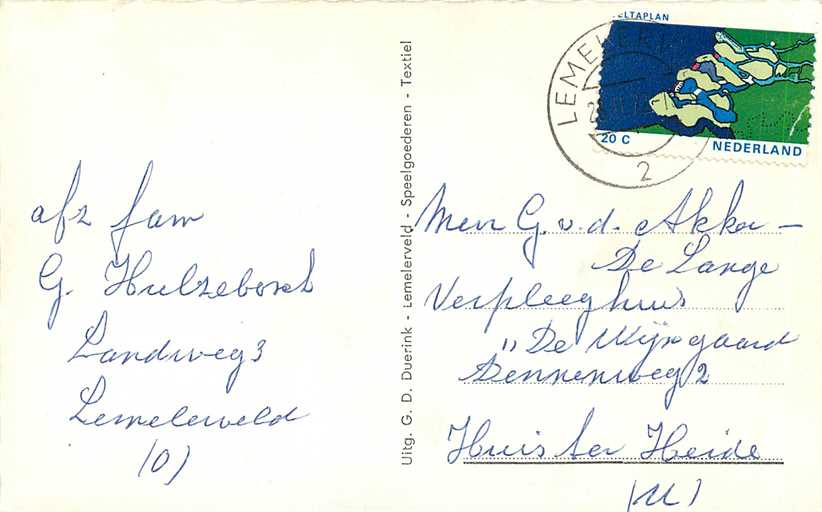 afz fam
G. Hulzebosch
Landweg 3
Lemelerveld
(O)
Uitg. G. D. Duerink - Lemelerveld - Speelgoederen - Textiel
LTAPLAN
20 C
NEDERLAND
LEMELER
2
Mevr G. v. d. Akker -
De Lange
Verpleeghuis
"De Wijngaard
Dennenweg 2
Huis ter Heide
(U)